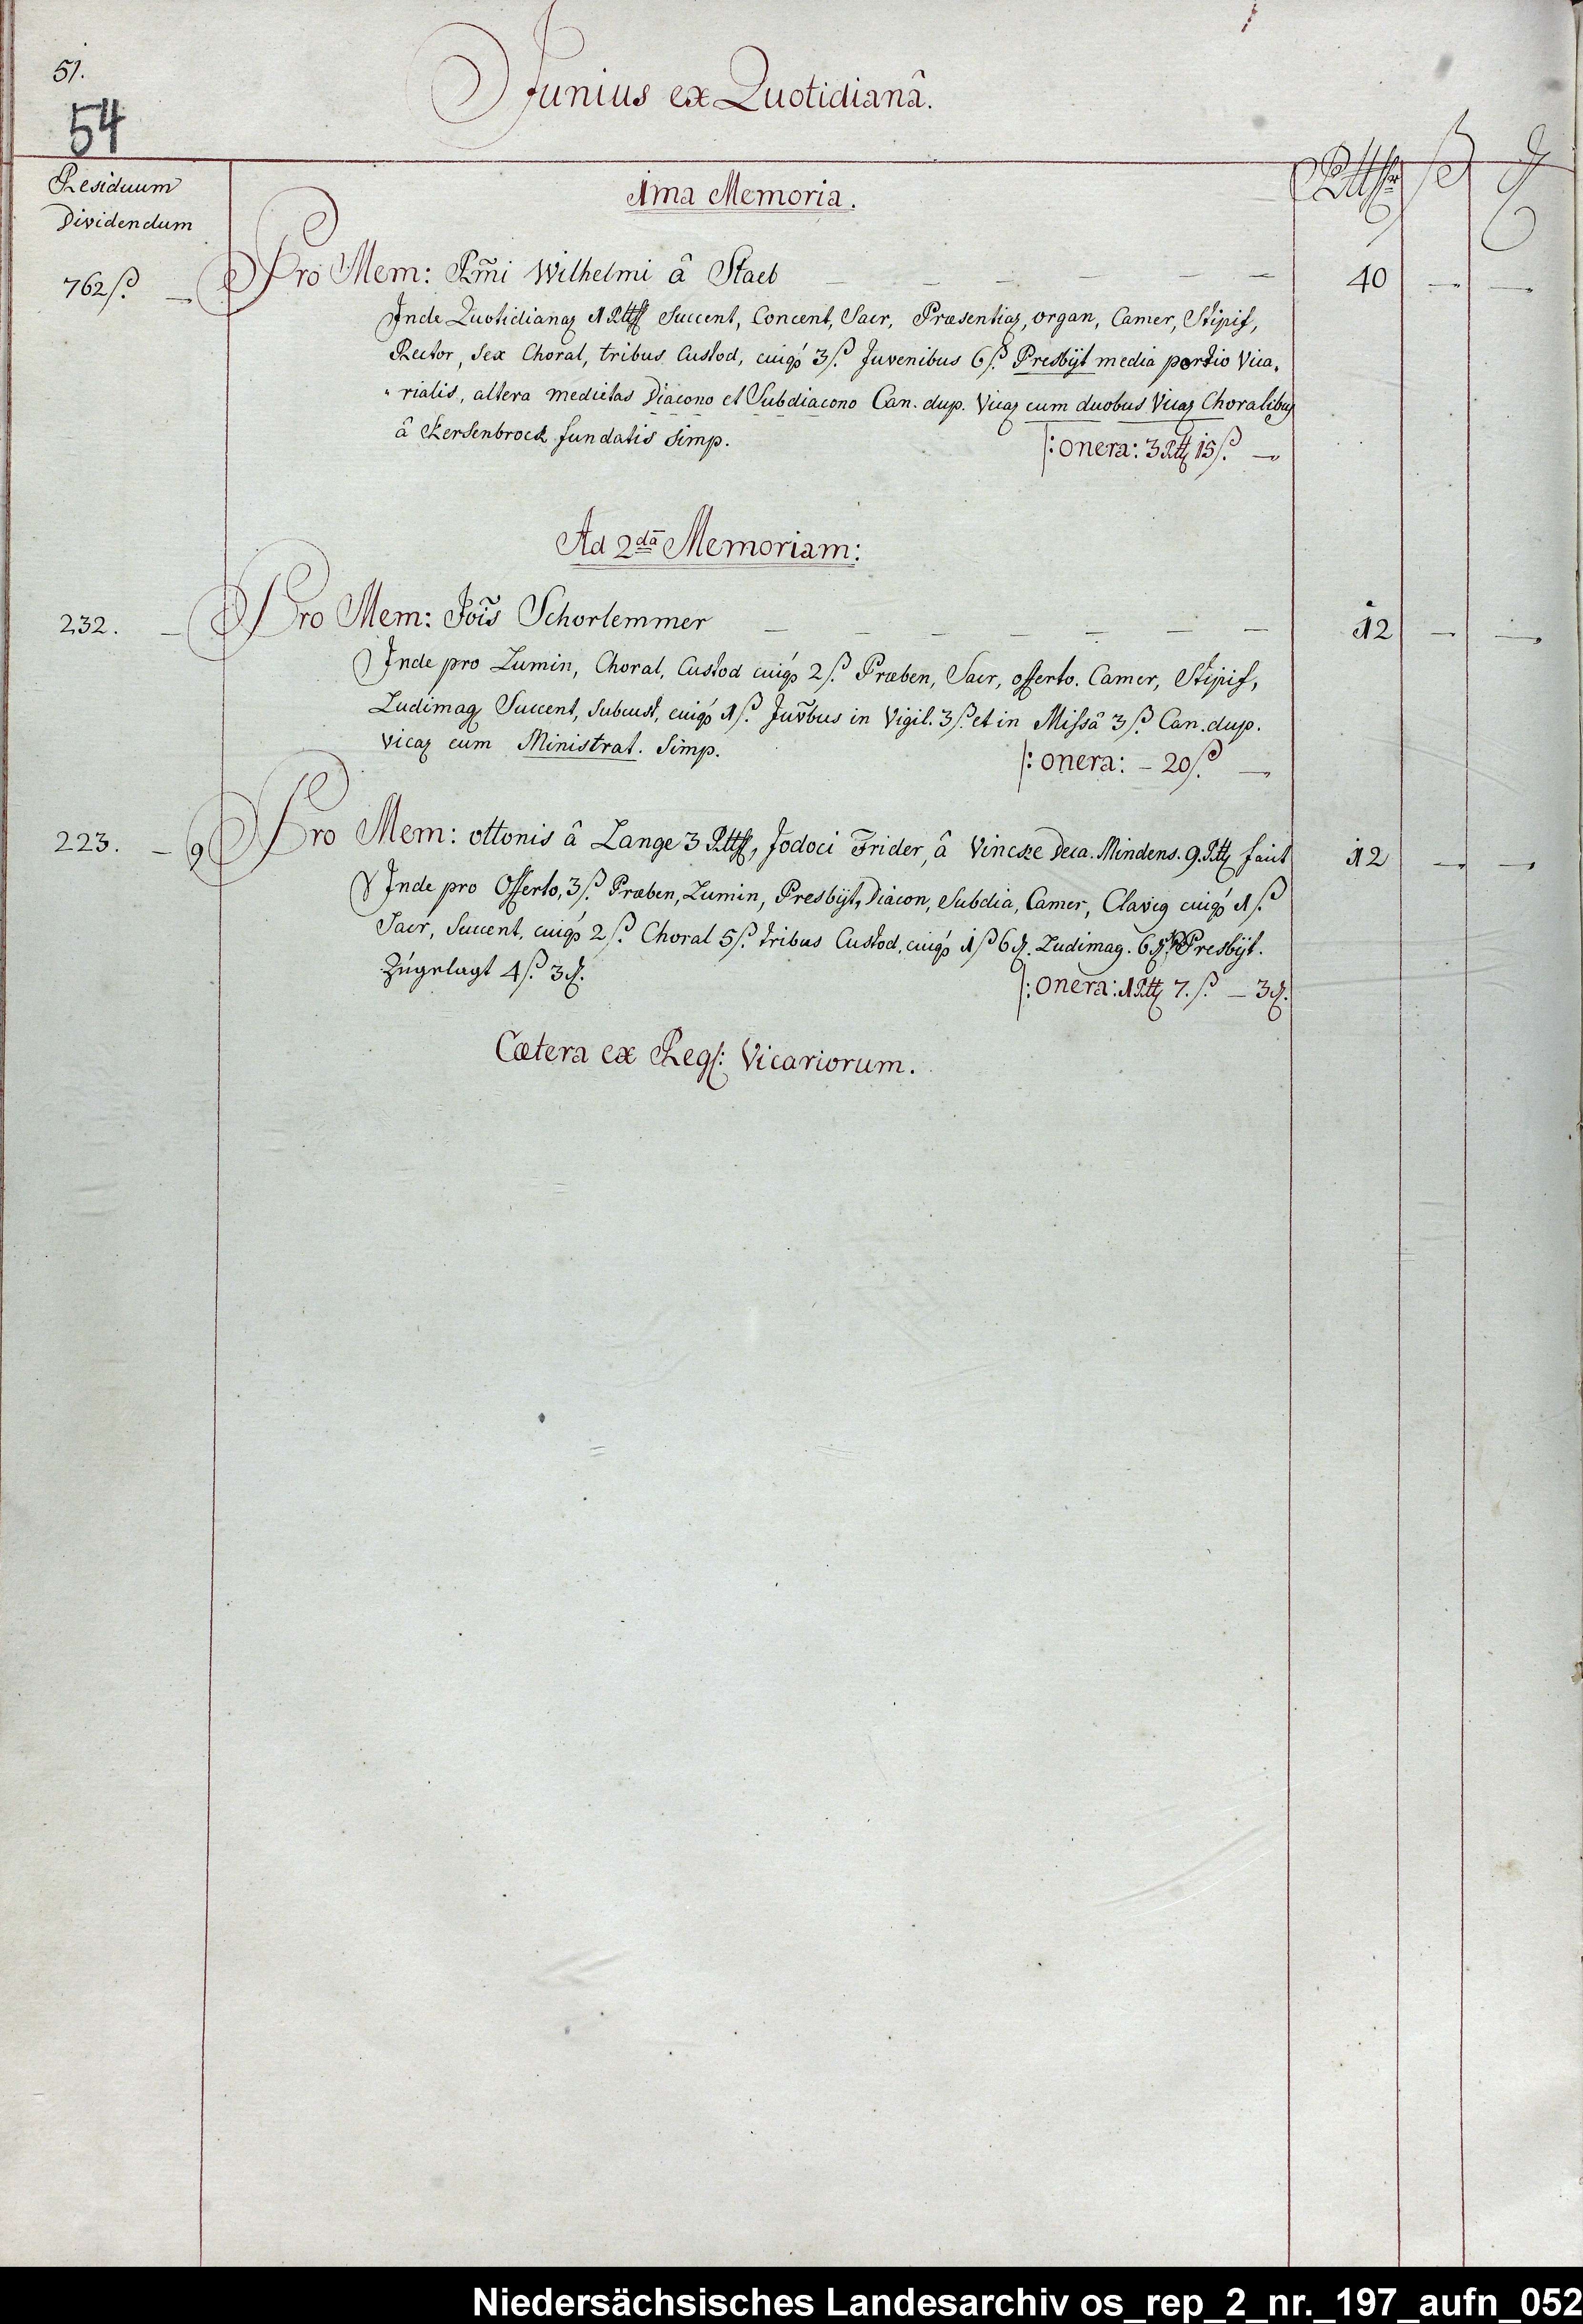 51.
54
Junius ex Quotidianâ.
Residuum Dividendum
Rtthlr ß ₰
1ma Memoria.
762 ß. — Pro Mem: Rm̃i Wilhelmi â Stael — — — — — — 40 — —
Inde Quotidianaʒ 1 Rtthlr Succent, Concent, Sacr, Præsentiaʒ, organ, Camer, Stipif,
Rector, sex Choral, tribus Custod, cuiqꝫ 3 ß. Juvenibus 6 ß. Presbÿt media portio Vica„
„rialis, altera medietas Diacono et Subdiacono Can. dup. Vicaʒ cum duobus Vicaʒ Choralibuʒ
â Kersenbrock fundatis simp. |: onera: 3 Rtt 15 ß. —
Ad 2dā Memoriam:
232. — Pro Mem: Jois̃ Schorlemmer — — — — — — — 12 — —
Inde pro Lumin, Choral, Custod cuiqꝫ 2 ß. Præben, Sacr, offerto. Camer, Stipif,
Ludimag Succent, subcust, cuiqꝫ 1 ß. Juṽbus in Vigil. 3 ß. et in Missâ 3 ß. Can. dup.
vicaʒ cum Ministrat. simp. |: onera: – 20 ß. —
223. — 9 Pro Mem: ottonis â Lange 3 Rtthlr, Jodoci Frider, â Vincke Deca. Mindens. 9. Rtt facit 12 — —
Inde pro Offerto, 3 ß. Præben, Lumin, Presbÿt, Diacon, Subdia, Camer, Clavig cuiqꝫ 1 ß.
Sacr, Succent, cuiqꝫ 2 ß. Choral 5 ß. tribus Custod, cuiqꝫ 1 ß 6 ₰. Ludimag. 6 ₰. Presbÿt.
Zúgelagt 4 ß. 3 ₰. |: onera: 1 Rtt 7. ß. — 3 ₰.
Cætera ex Reg: Vicariorum.
Niedersächsisches Landesarchiv os_rep_2_nr._197_aufn_052